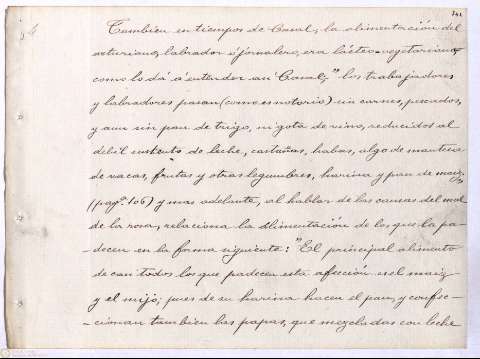 141
Tambien en tiempos de Casal, la alimentación del
asturiano, labrador ó jornalero, era lácteo-vegetariana,
como lo da á entender an Casal; "los trabajadores
y labradores pasan (como es notorio) sin carnes, pescados,
y aun sin pan de trigo, ni gota de vino, reducidos al
debil sustento de leche, castañas, habas, algo de manteca
de vacas, frutas y otras legumbres, harina y pan de maiz,
(pagª. 106) y mas adelante, al hablar de las causas del mal
de la rosa, relaciona la alimentación de los que la pa-
-decen en la forma siguiente: "El principal alimento
de casi todos los que padecen esta afección es el maiz
y el mijo, pues de su harina hacen el pan, y confec-
-cionan tambien las papas, que mezcladas con leche